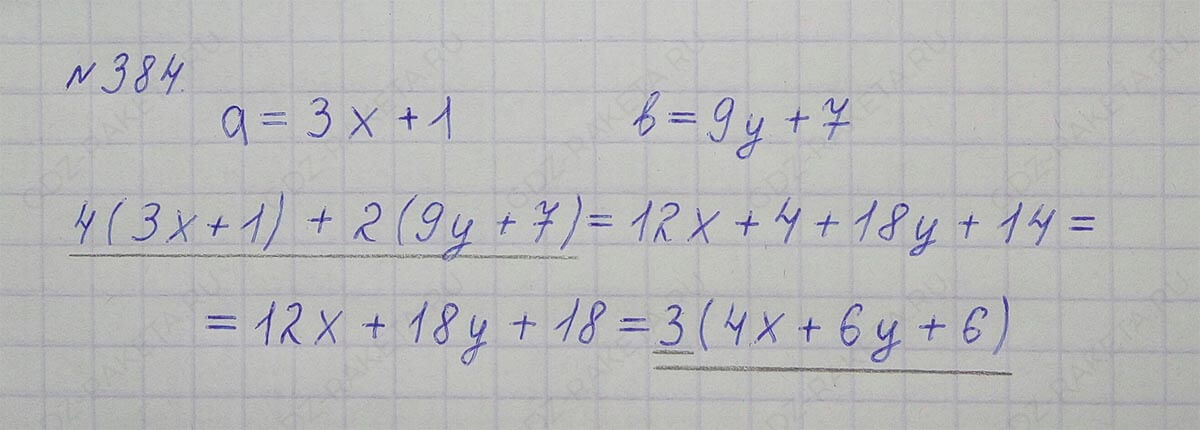 №384.
a = 3x + 1 b = 9y + 7
4(3x + 1) + 2(9y + 7) = 12x + 4 + 18y + 14 =
= 12x + 18y + 18 = 3(4x + 6y + 6)
GDZ-RAKETA.RU